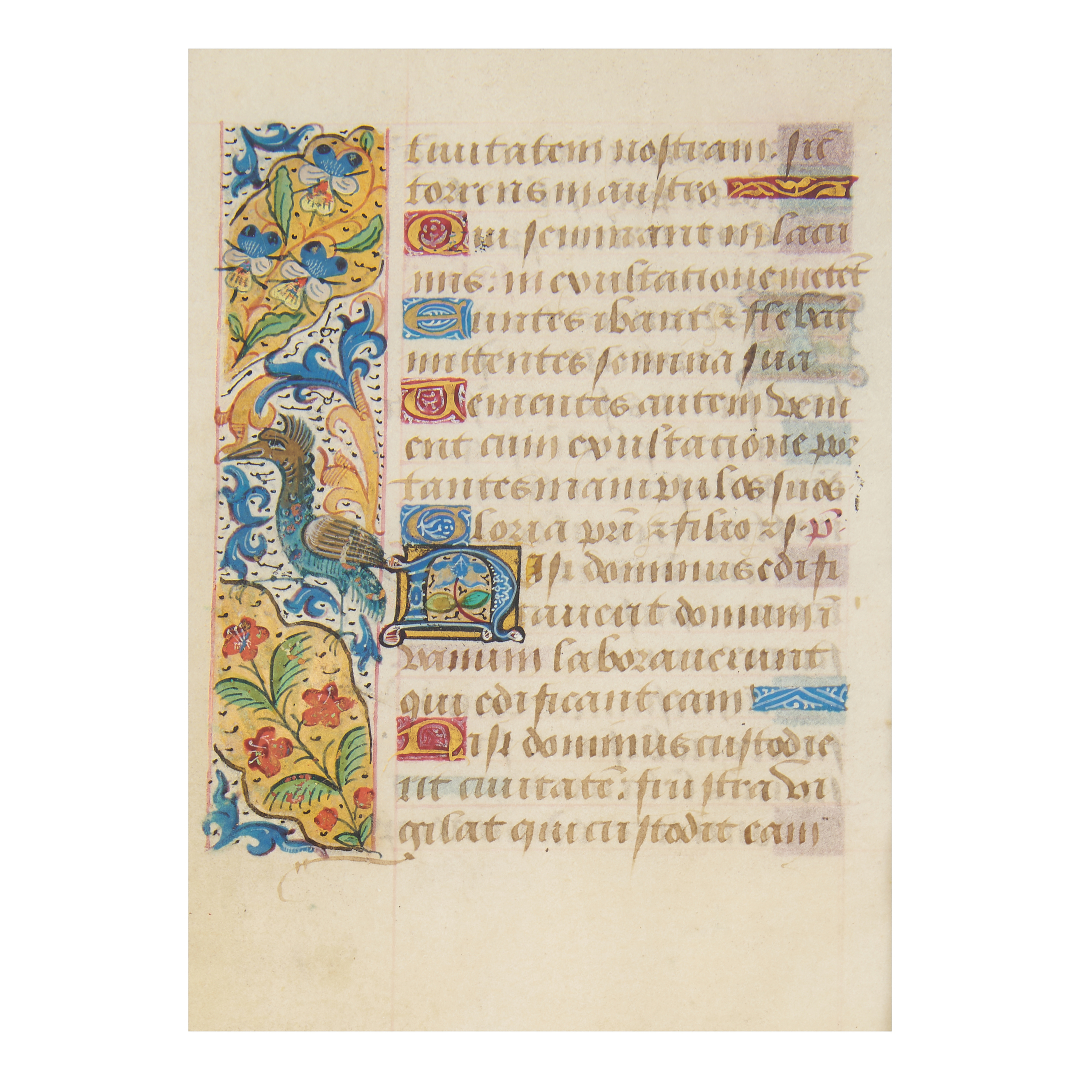 tiuitatem nostram. sic
torrens in austro
Qui seminant in lacri
mis: in exultatione metēt
Euntes ibant ⁊ flebāt
mittentes semina sua
Uenientes autem veni
ent cum exultatione por
tantes manipulos suos
Gloria pr̄i ⁊ filio ⁊ s. p̄.
Nisi dominus edifi
cauerit domum ī
vanum laborauerunt
qui edificant eam
Nisi dominus custodie
rit ciuitatē: frustra vi
gilat qui custodit eam